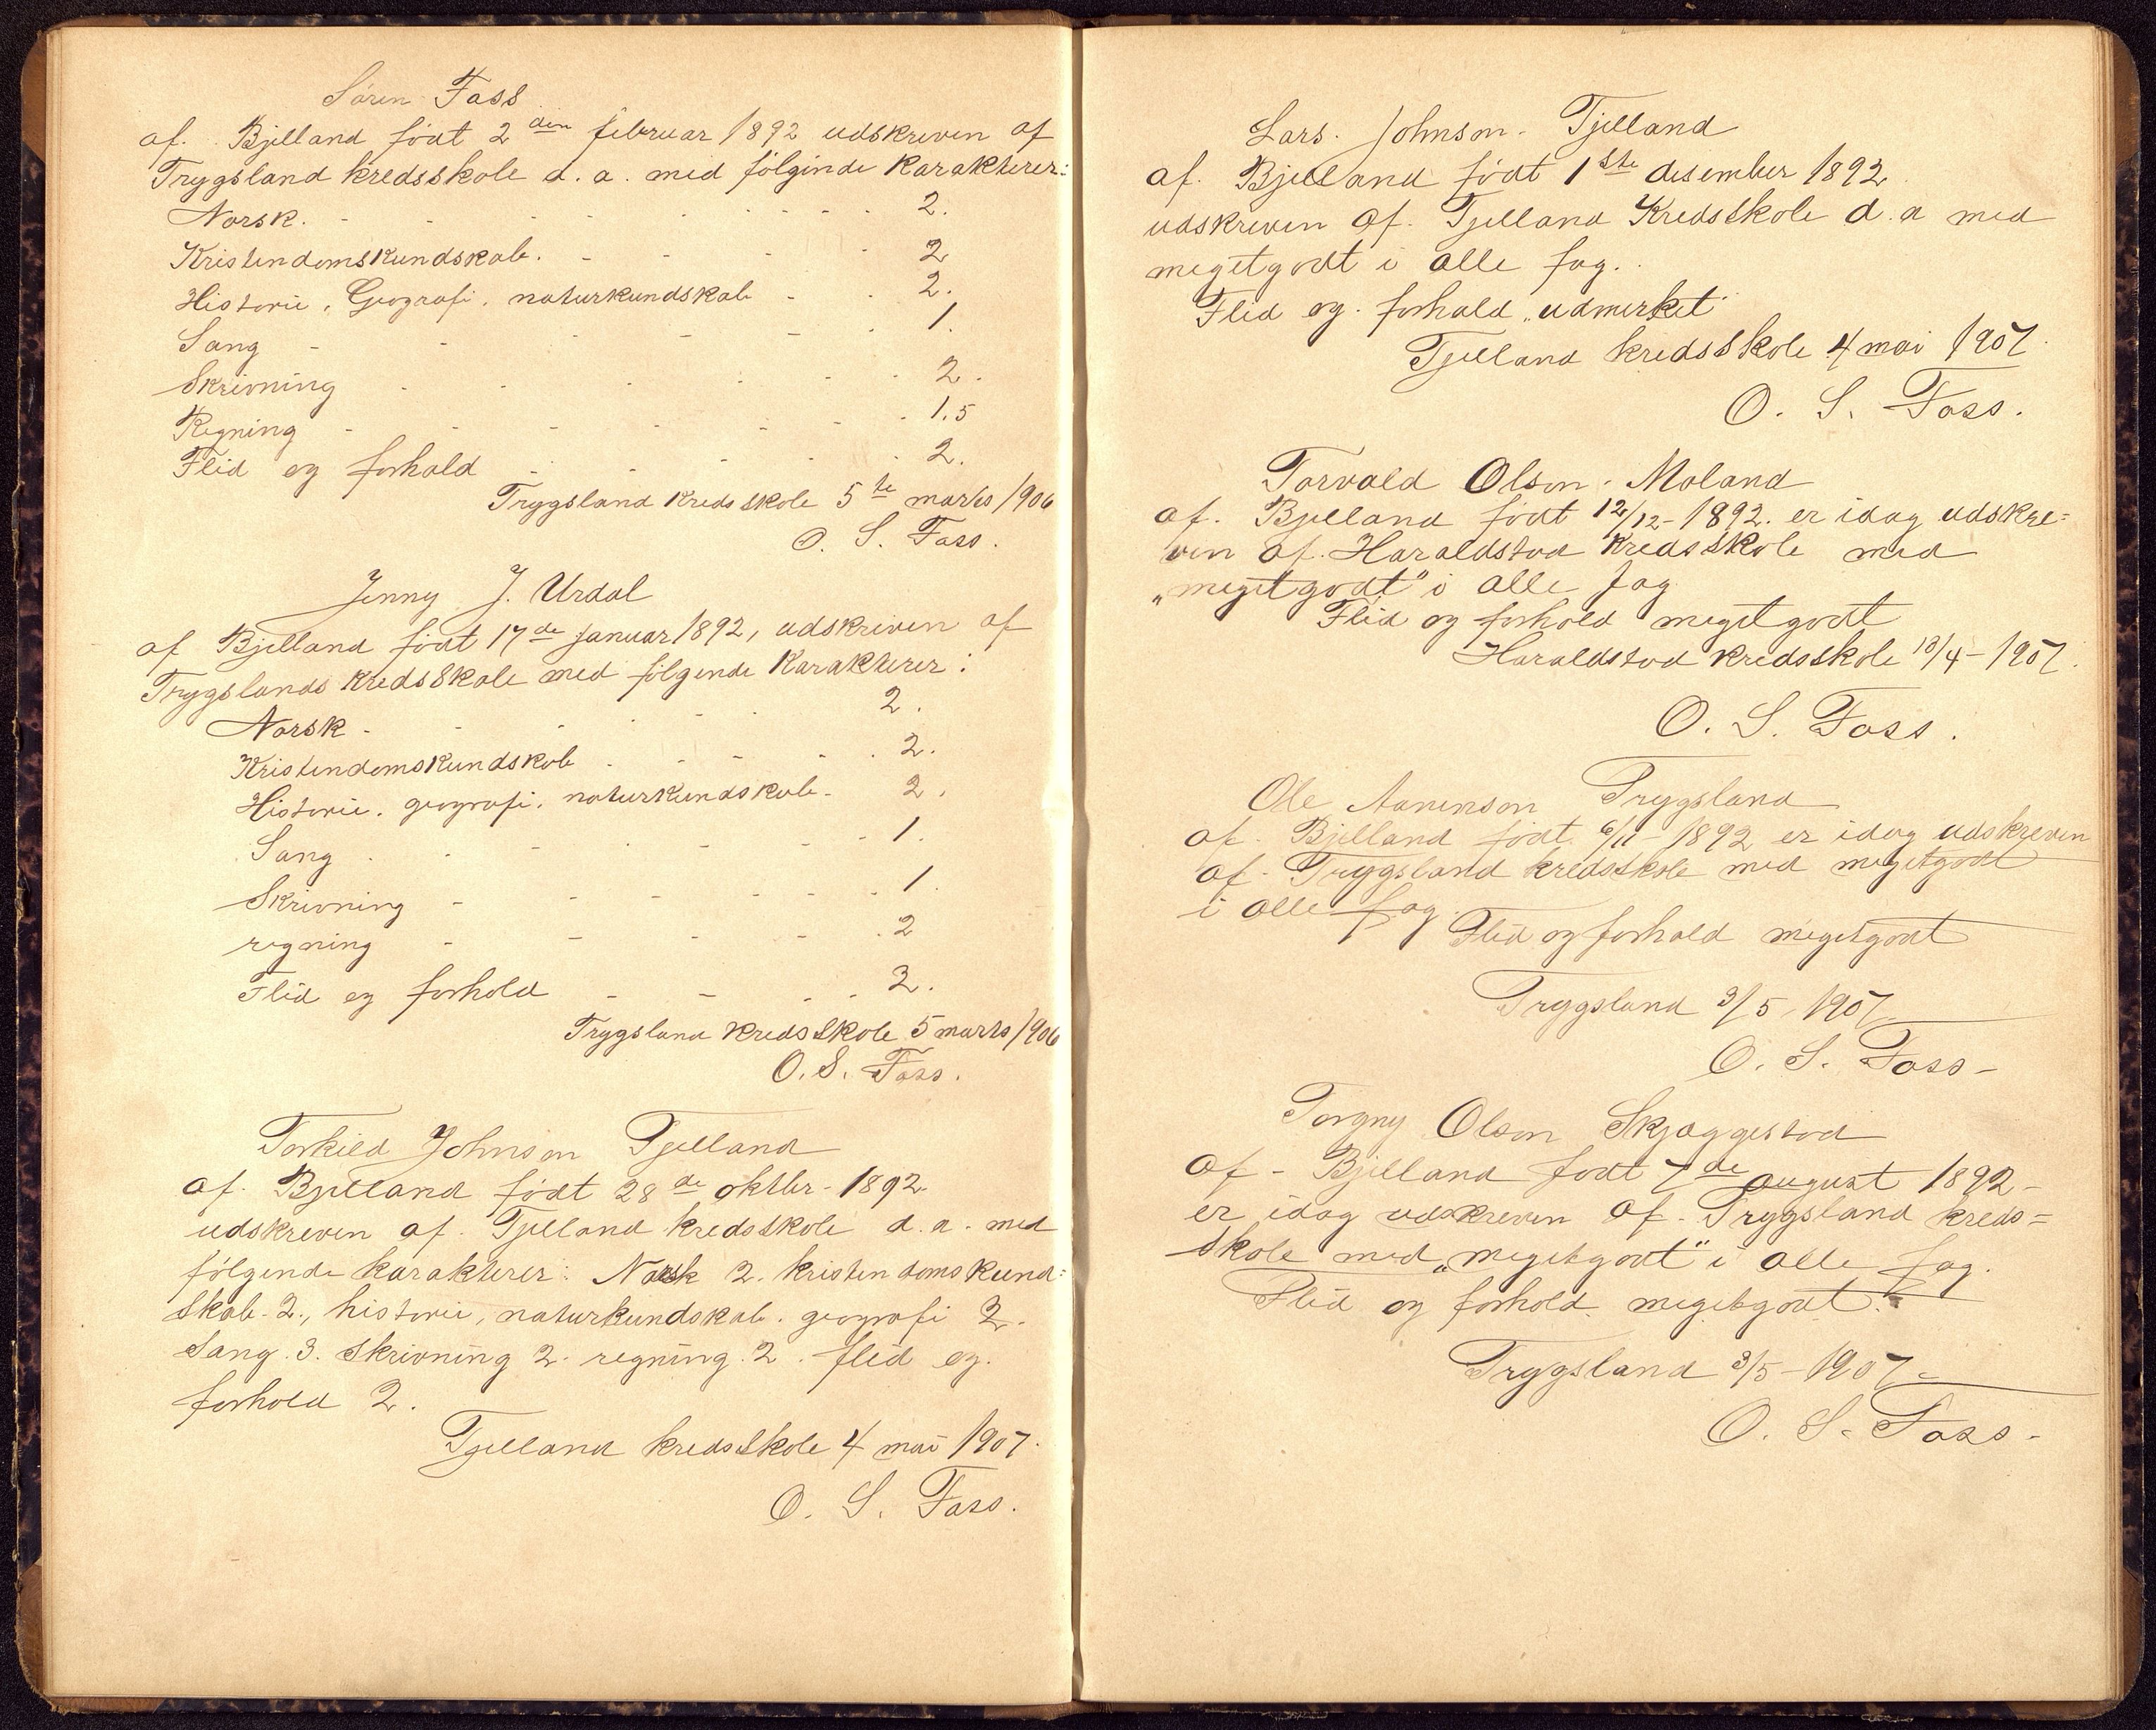 Sören Foss
af. Bjelland födt 2den februar 1892 udskreven af
Trygsland kredsskole d. a. med fölgende Karakterer:
Norsk. - - - - - - - - - 2.
Kristendomskundskab. - - - - 2
Historie, Geografi, naturkundskab - - 2.
Sang - - - - - - 1.
Skrivning - - - - - - 2.
Regning - - - - - - - 1.5
Flid og forhold - - - - - 2.
Trygsland Kredsskole 5te marts 1906
O. S. Foss.
Jenny J. Urdal
af Bjelland födt 17de januar 1892, udskreven af
Trygslands Kredsskole med fölgende Karakterer:
Norsk - - - - - - 2.
Kristendomskundskab - - - - - 2.
Historie. geografi. naturkundskab - 2.
Sang - - - - - - - 1.
Skrivning - - - - - - 1.
regning - - - - - 2
Flid og forhold - - - - 2.
Trygsland Kredsskole 5 marts 1906
O. S. Foss.
Torkild Johnson Tjelland
af. Bjelland födt 28de oktbr - 1892.
udskreven af. Tjelland kredsskole d. a. med
fölgende karakterer: Norsk 2. kristendomskund=
skab 2., historie, naturkundskab. geografi 2.
Sang. 3. Skrivning 2. regning. 2. flid og.
forhold 2.
Tjelland kredsskole 4 mai 1907.
O. S. Foss.
Lars. Johnson. Tjelland
af. Bjelland födt 1ste desember 1892
udskreven af. Tjelland Kredsskole d. a med
megetgodt i alle fag.
Flid og. forhold „udmerket"
Tjelland kredsskole 4 mai 1907.
O. S. Foss.
Torvald Olson. Moland
af. Bjelland födt 12/12-1892. er idag udskre=
ven af. Haraldstad Kredsskole med
„megetgodt" i alle fag
Flid og forhold megetgodt
Haraldstad kredsskole 13/4-1907.
O. S. Foss.
Ole Aanenson Trygsland
af. Bjelland födt 6/11-1892 er idag udskreven
af. Trygsland kredsskole med megetgodt
i alle fag.
Flid og forhold megetgodt
Trygsland 3/5 1907
O. S. Foss -
Torgny Olson Skjæggestad
af - Bjelland födt 7de august 1892 -
er idag udskreven af. Trygsland kreds=
skole med „megetgodt" i alle fag.
Flid og forhold megetgodt.
Trygsland 3/5-1907.
O. S. Foss -